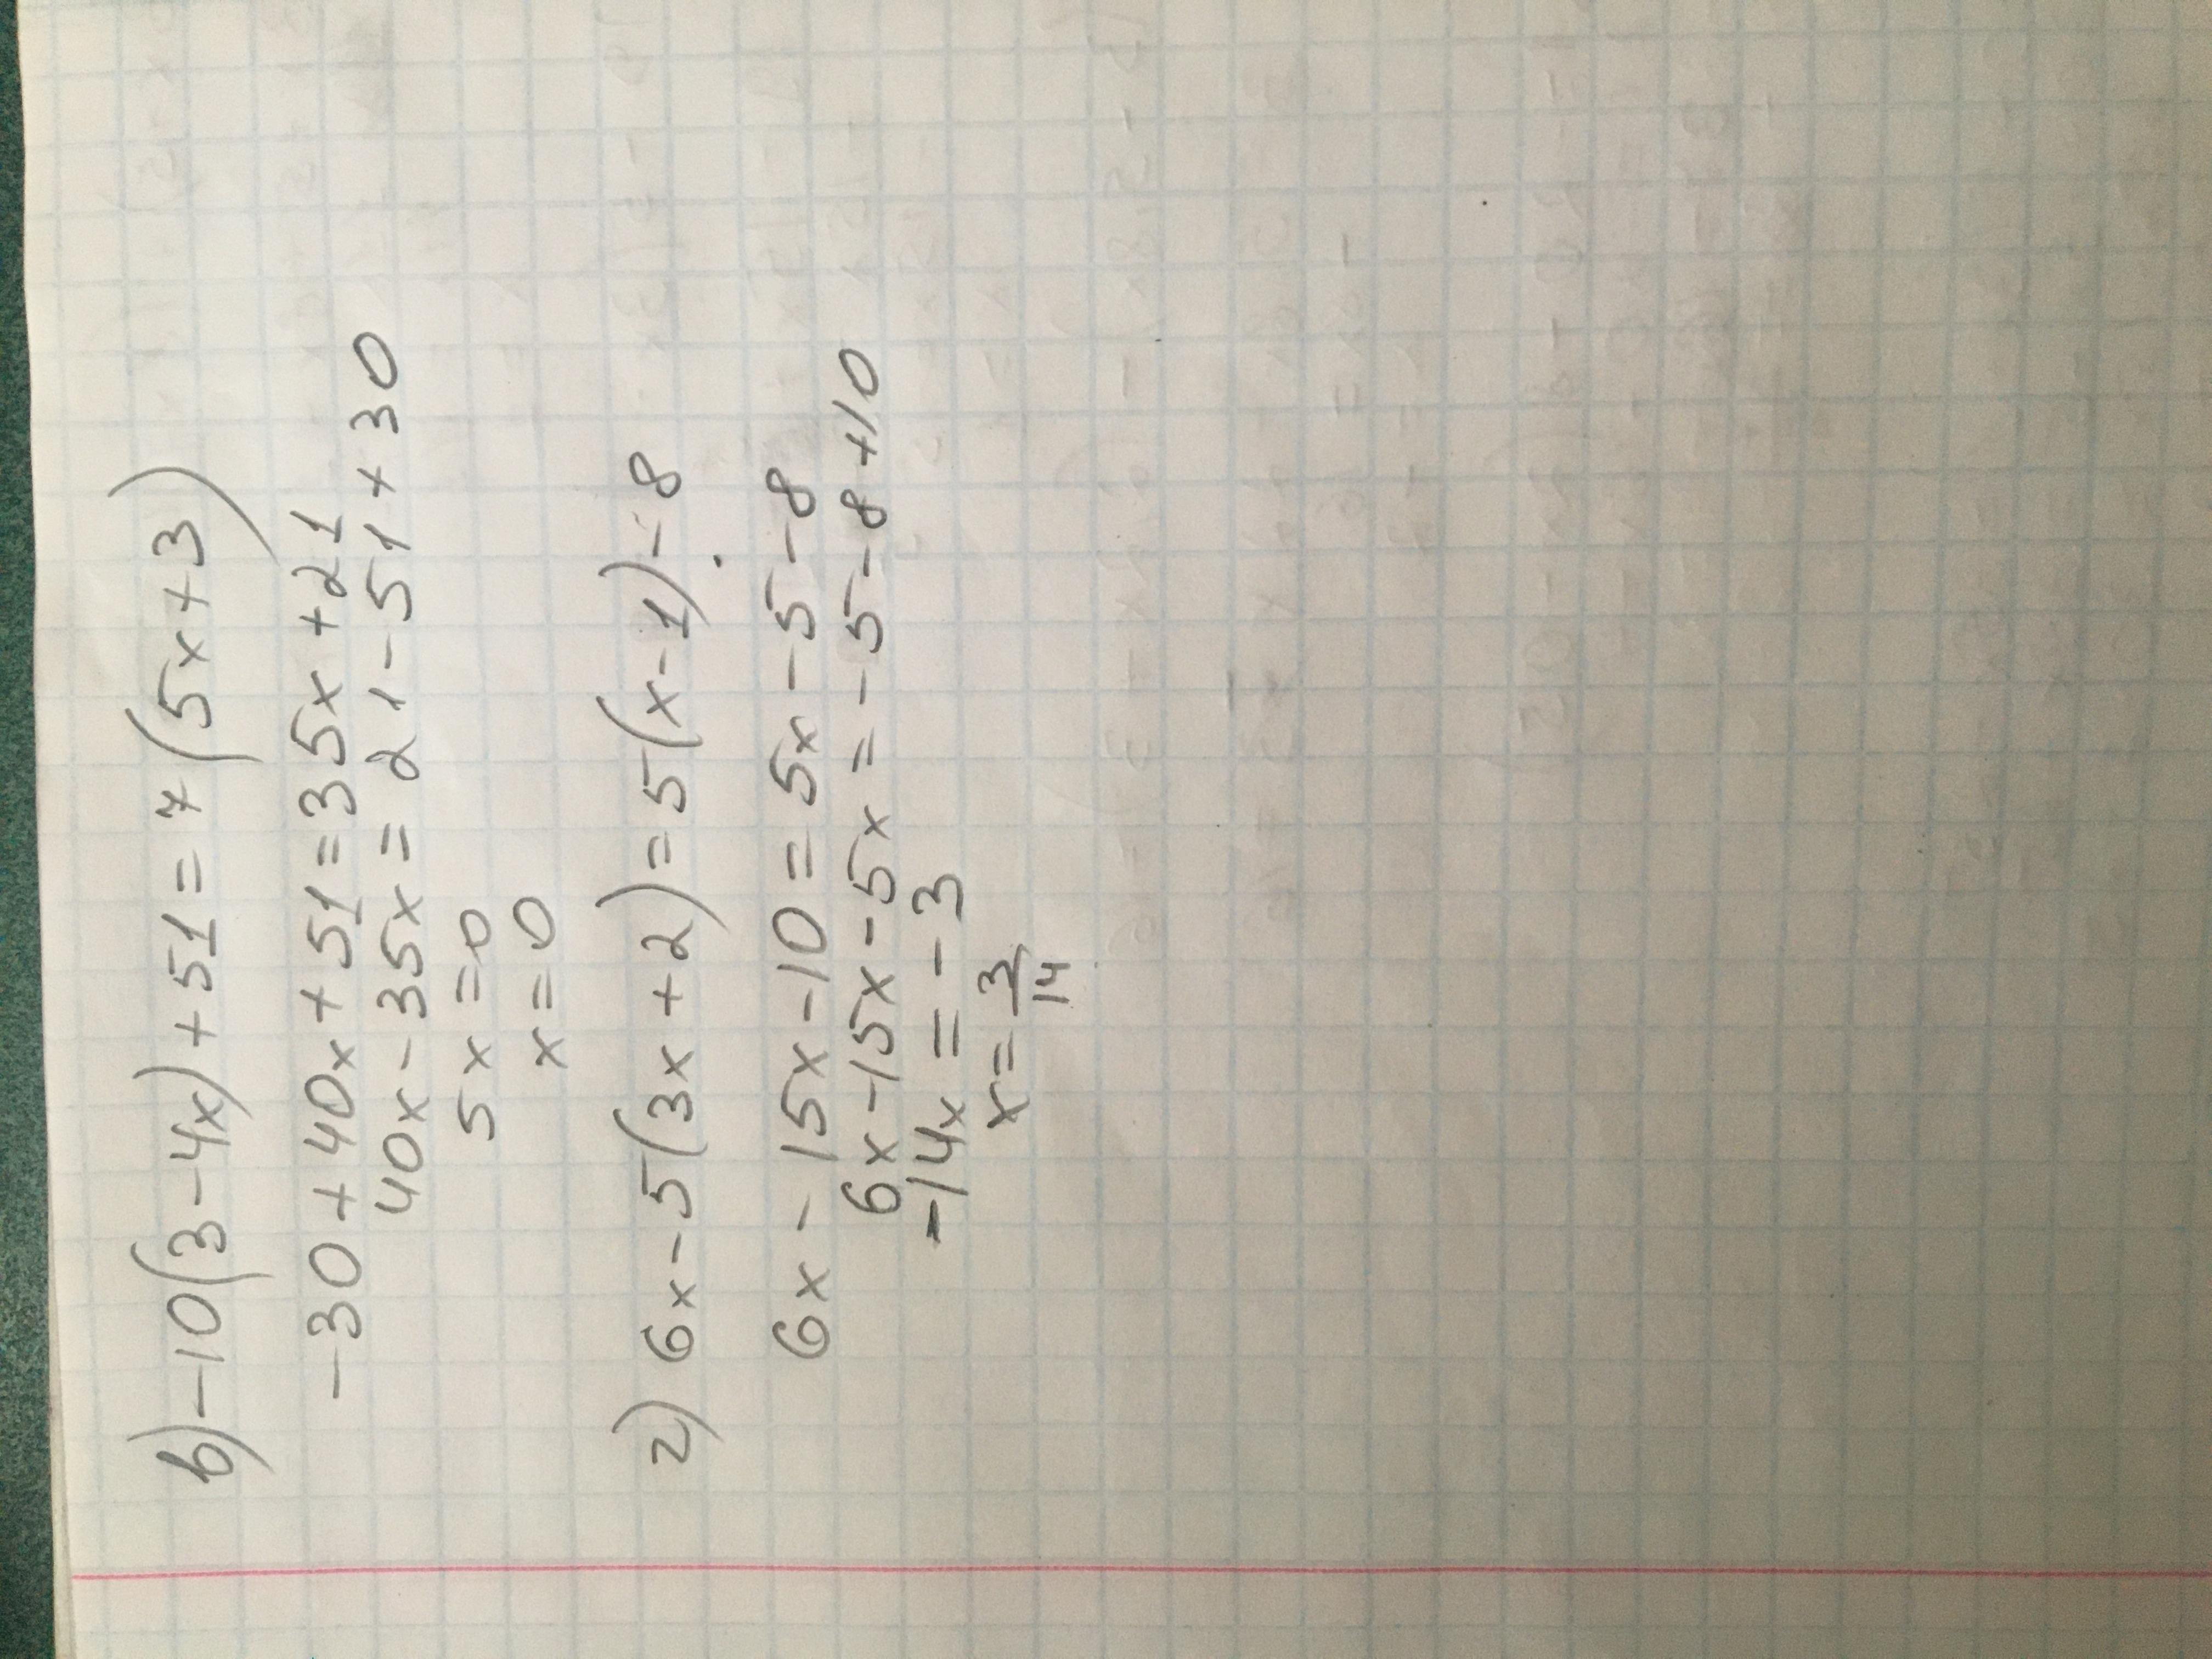 в) -10(3-4x)+51=7(5x+3)
-30+40x+51=35x+21
40x-35x=21-51+30
5x=0
x=0
г) 6x-5(3x+2)=5(x-1)-8
6x-15x-10=5x-5-8
6x-15x-5x=-5-8+10
-14x=-3
x=3/14